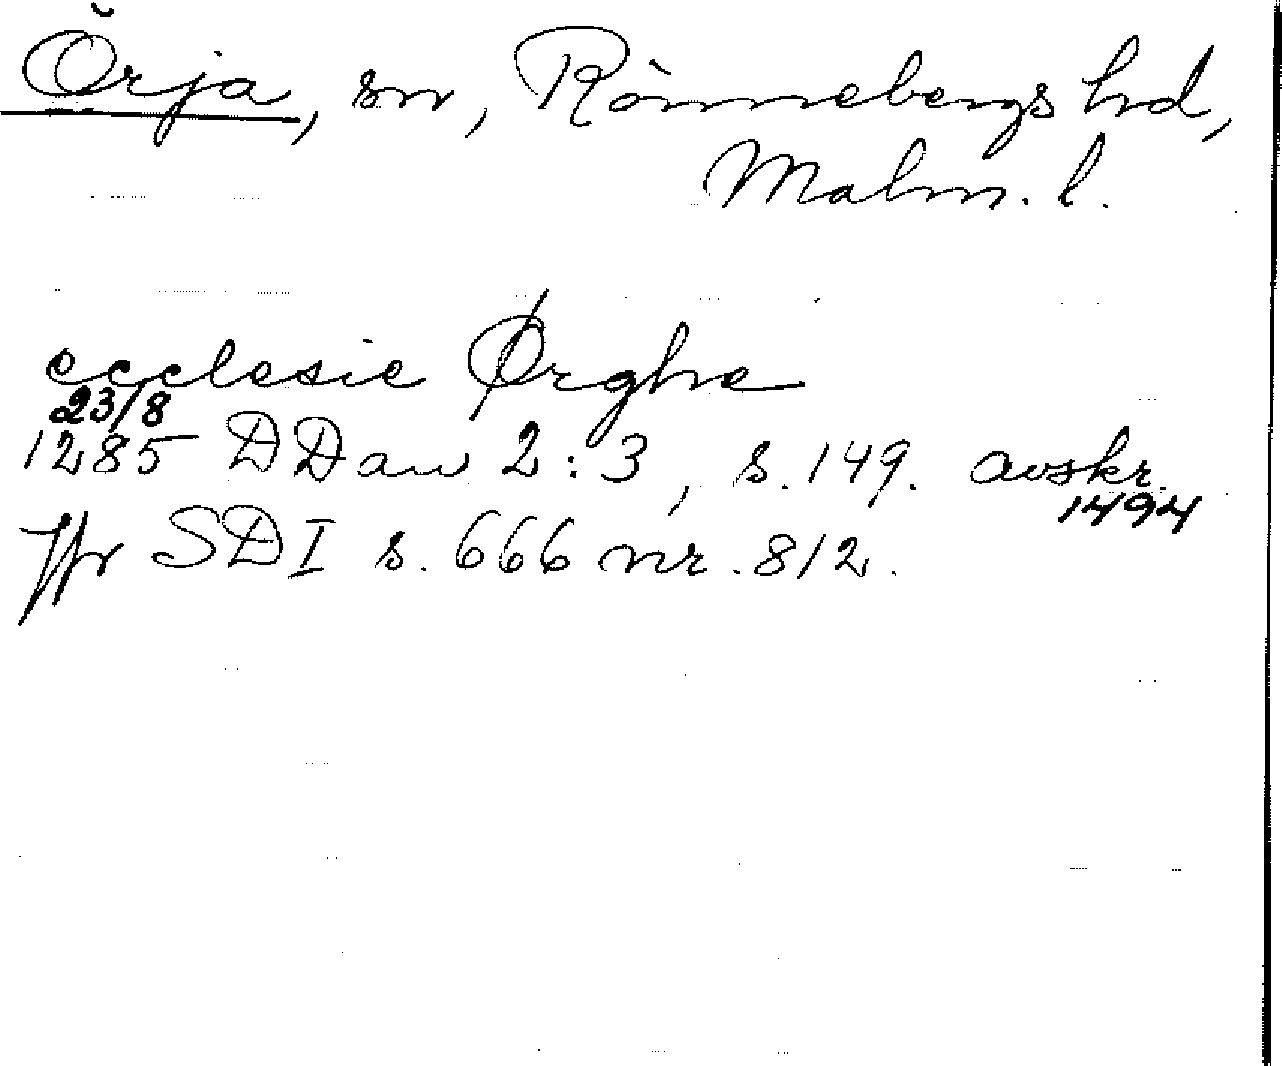 Örja, sn, Rönnebergs hrd,
Malm. l.
ecclesie Ørghe
23/8
1285 DDan 2:3, s. 149. avskr.
1494
Jfr SD I s. 666 nr. 812.